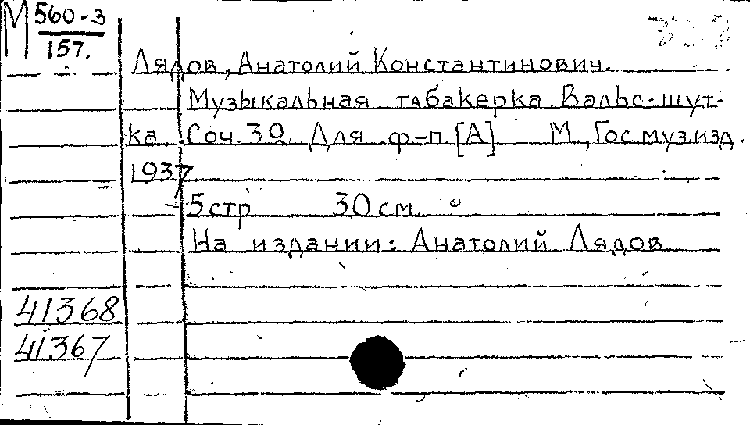 М 560-3
157.
Лядов, Анатолий Константинович.
Музыкальная табакерка Вальс-шут-
ка Соч. 32 Для ф-п. [А] М., Гос муз изд.
1937
5 стр 30 см
На издании: Анатолий Лядов
41368
41367